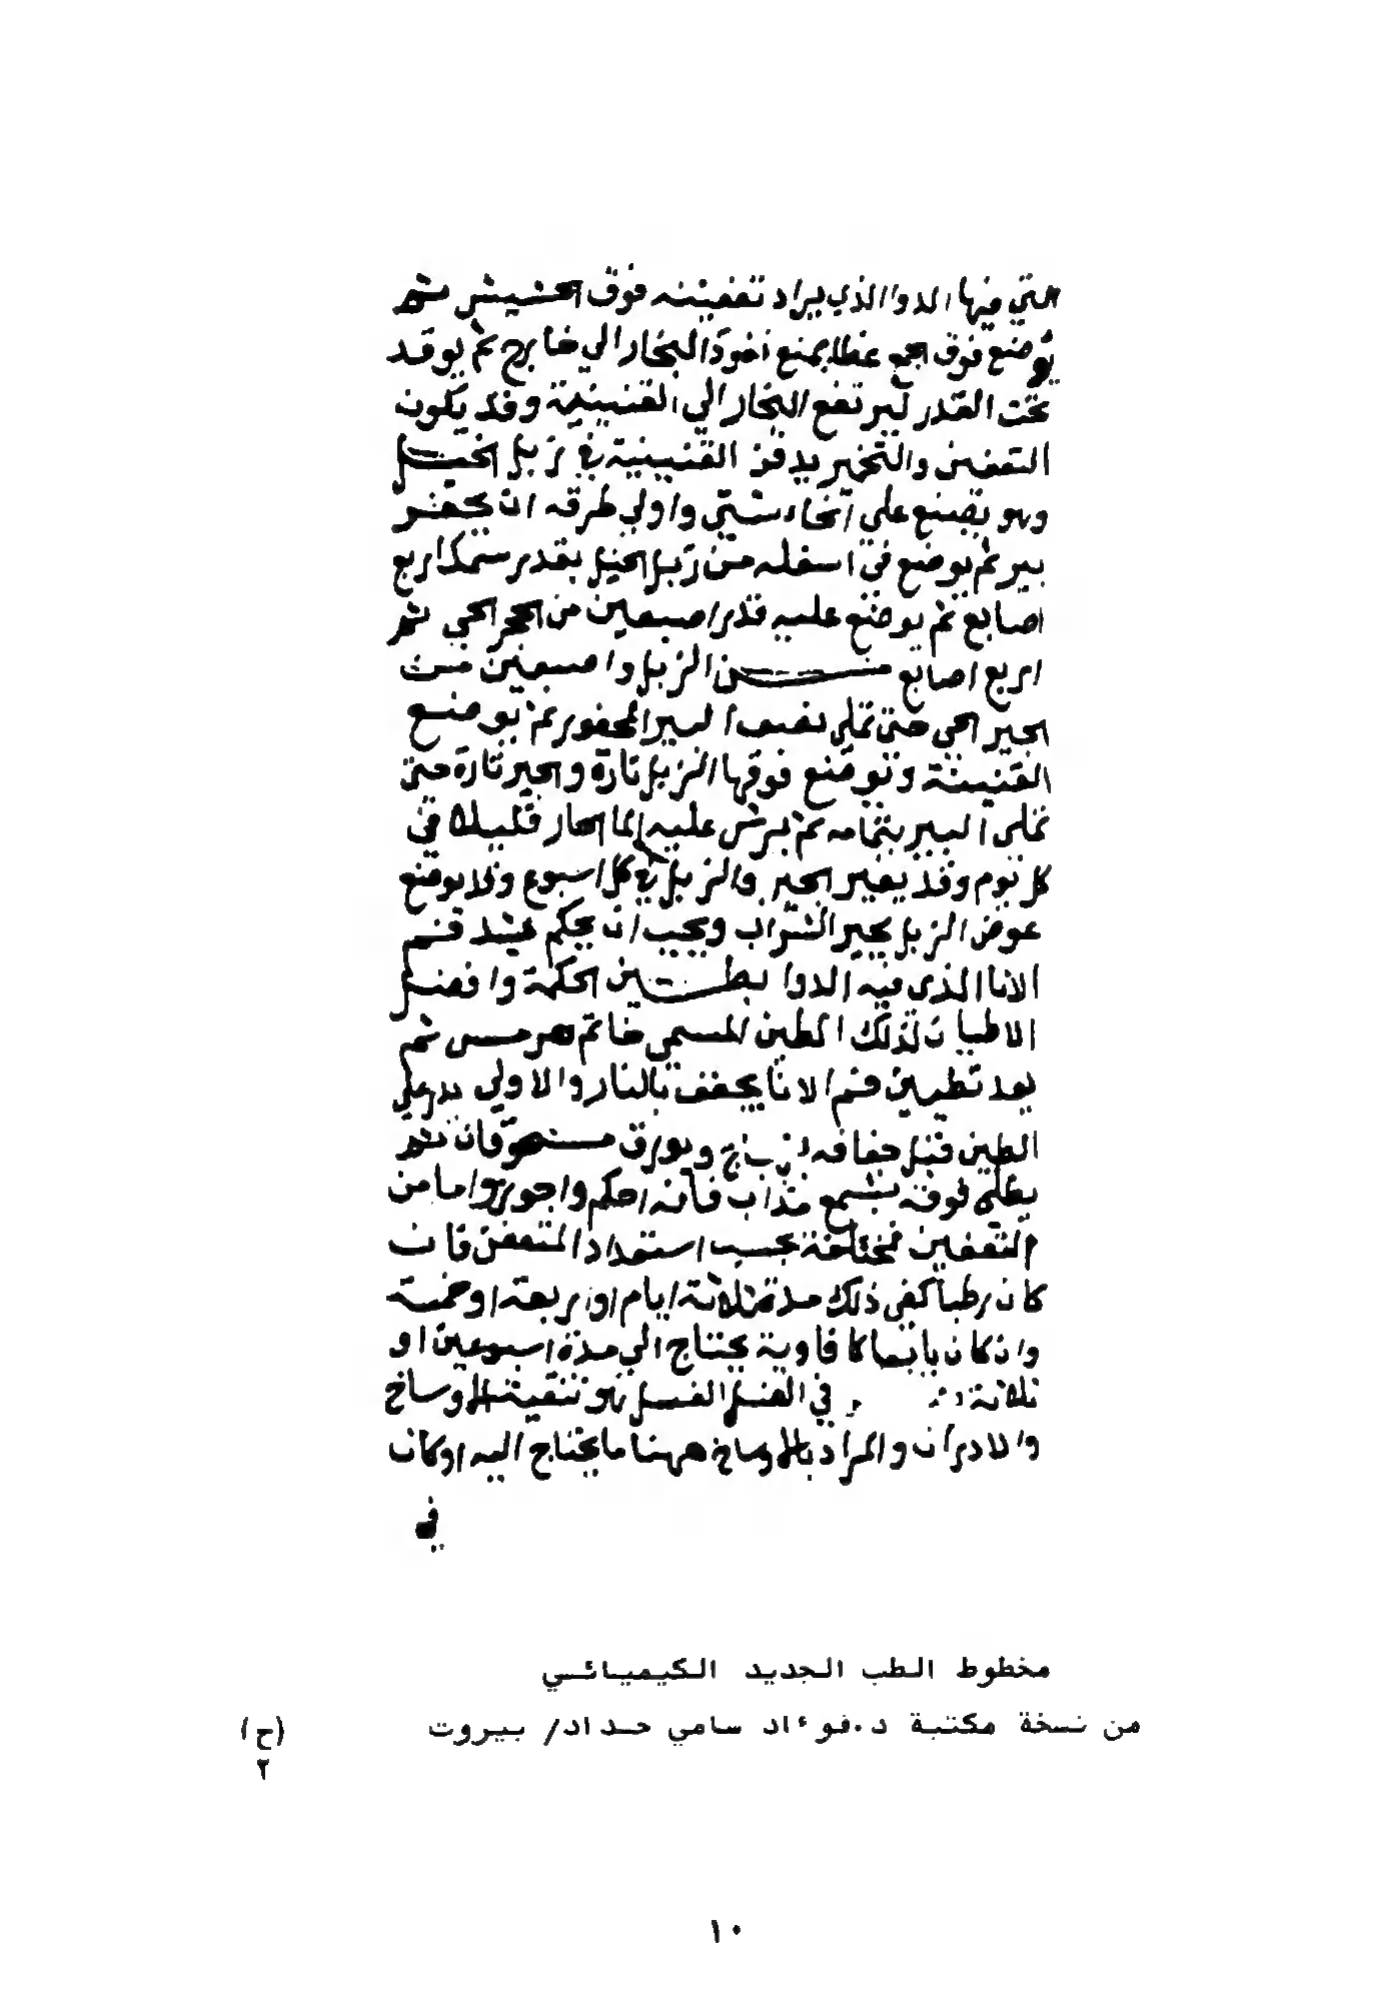 التي فيها الدوا الذي يراد تعفينه فوق الحشيش ثم
يوضع فوق الجمع غطا يمنع نفوذ البخار الي خارج ثم يوقد
تحت القدر ليرتفع البخار الي القنينة وقد يكون
التعفين والتخمير بدفن القنينة في زبل الخيل
وهو يصنع علي انحاء شتي واولي طرقه ان يحفر
بير ثم يوضع في اسفله من زبل الخيل بقدر سمك اربع
اصابع ثم يوضع عليه قدر اصبعين من الحجر الحي ثم
اربع اصابع من الزبل واصبعين من
الجير الحي حتي تملي نصف البير المحفور ثم يوضع
القنينة وتوضع فوقها الزبل تارة والجير تارة حتي
تملي البير بتمامه ثم يرش عليه الما الحار قليلا في
كل يوم وقد يغير الجير والزبل في كل اسبوع وقد يوضع
عوض الزبل بجير الشراب ويجب ان يحكم عند فم
الانا الذي فيه الدوا بطين الحكمة وافضل
الاطيان لذلك الطين المسمي خاتم هرمس ثم
بعد تطيين فم الانا يجفف بالنار والاولي علي
الطين قبل جفافه زجاج وبورق مسحوقان ثم
يطلي فوقه بشمع مذاب فانه احكم واجود واما من
التعفين فمختلفة بحسب استعداد المتعفن فان
كان رطبا كفي ذلك مدة ثلاثة ايام او اربعة او خمسة
وان كان يابسا كالافاوية يحتاج الي مدة اسبوعين او
ثلاثة في الغسل الغسل هو تنقية الاوساخ
والادران والمراد بالاوساخ ههنا ما يحتاج اليه او كان
في
مخطوط الطب الجديد الكيميائي
من نسخة مكتبة د.فوءاد سامي حداد/ بيروت
(ح)
٢
١٠